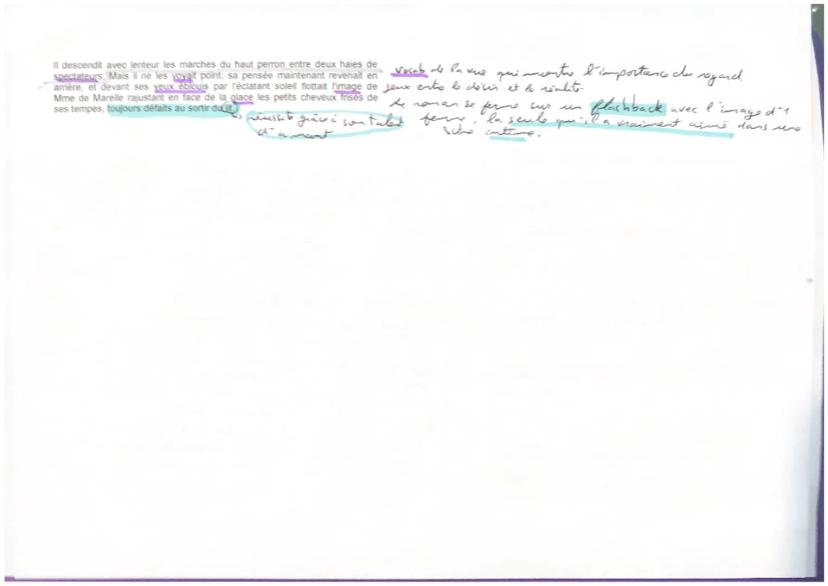 Il descendit avec lenteur les marches du haut perron entre deux haies de
spectateurs. Mais il ne les voyait point; sa pensée maintenant revenait en
arrière, et devant ses yeux éblouis par l'éclatant soleil flottait l'image de
Mme de Marelle rajustant en face de la glace les petits cheveux frisés de
ses tempes, toujours défaits au sortir du lit.
vocab de la vue qui montre l'importance du regard
entre le désir et la réalité.
le roman se ferme sur un flashback avec l'image d'1
femme, la seule qu'il a vraiment aimé dans une
intime.
réussite grâce à son talent
d'amant